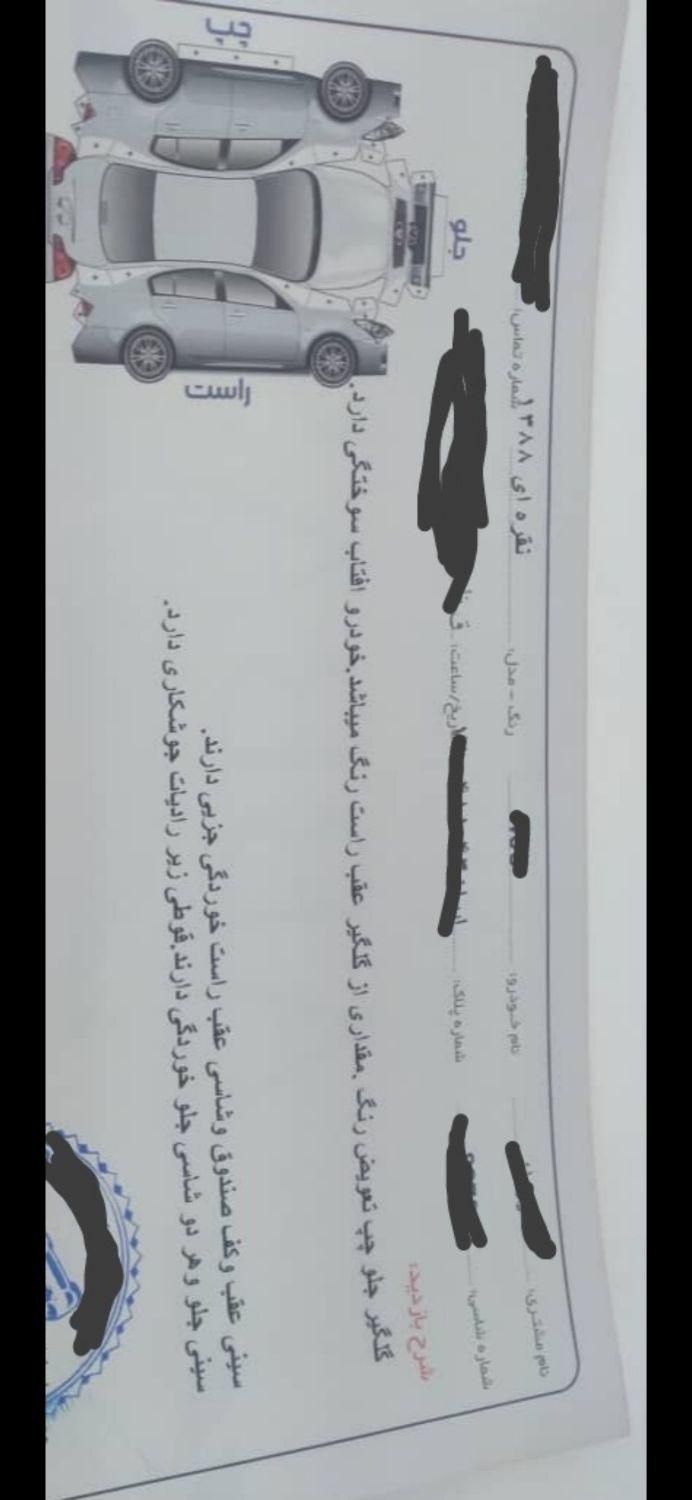 نام مشتری: نام خودرو: رنگ - مدل: نقره ای ۱۳۸۸ شماره تماس:
شماره شاسی: شماره پلاک: تاریخ/ساعت:
شرح بازدید:
گلگیر جلو چپ تعویض رنگ .مقداری از گلگیر عقب راست رنگ میباشد.خودرو افتاب سوختگی دارد.
سینی عقب وکف صندوق وشاسی عقب راست خوردگی جزیی دارند.
سینی جلو وهر دو شاسی جلو خوردگی دارند.قوطی زیر رادیات جوشکاری دارد.
چپ
جلو
راست